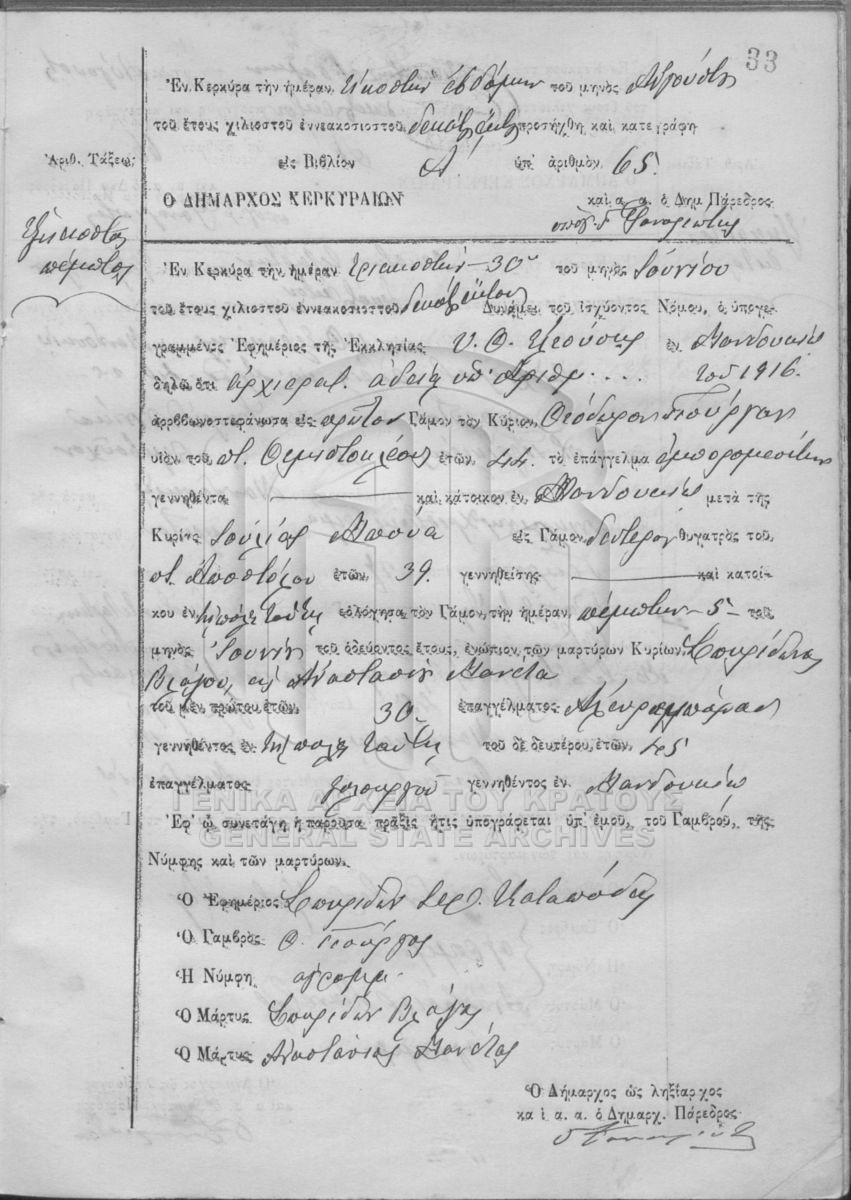 33
Ἐν Κερκύρα τὴν ἡμέραν εἰκοστὴν ἑβδόμην τοῦ μηνὸς Αὐγούστου
τοῦ ἔτους χιλιοστοῦ ἐννεακοσιοστοῦ δεκάτου ἕκτου προσήχθη καὶ κατεγράφη
Ἀριθ. Τάξεως
εἰς Βιβλίον Α΄. ὑπ' ἀριθμὸν 65
Ο ΔΗΜΑΡΧΟΣ ΚΕΡΚΥΡΑΙΩΝ
καὶ α. α. ὁ Δημ Πάρεδρος
Ἑξηκοστὸς
πέμπτος
Ἐν Κερκύρα τὴν ἡμέραν τριακοστὴν - 30 τοῦ μηνὸς Ἰουνίου
τοῦ ἔτους χιλιοστοῦ ἐννεακοσιοστοῦ δεκάτου ἕκτου Δυνάμει τοῦ ἰσχύοντος Νόμου, ὁ ὑπογε-
γραμμένος Ἐφημέριος τῆς Ἐκκλησίας Υ. Θ. ἐν Μανδουκίῳ
δηλῶ ὅτι ἀρχιερατ. ἀδείᾳ ὑπ' ἀριθμ. . . . τοῦ 1916.
ἀρραβωνοστεφάνωσα εἰς πρῶτον Γάμον τὸν Κύριον, Θεόδωρον Γεούργαν
υἱὸν τοῦ, π. Θεμιστοκλέους ἐτῶν, 44. τὸ ἐπάγγελμα ἐμπορομεσίτην
γεννηθέντα καὶ κάτοικον ἐν Μανδουκίῳ μετὰ τῆς
Κυρίας Ἰουλίας Μπούα εἰς Γάμον, δεύτερον θυγατρὸς τοῦ,
π. Ἀποστόλου ἐτῶν, 39. γεννηθείσης καὶ κατοί-
κου ἐν τῇ πόλει ταύτῃ εὐλόγησα τὸν Γάμον, τὴν ἡμέραν, πέμπτην - 5 - τοῦ
μηνὸς Ἰουνίου τοῦ ὁδεύοντος ἔτους, ἐνώπιον τῶν μαρτύρων Κυρίων, Σπυρίδωνος
Βλάχου, καὶ Ἀναστασίου Μανέτα
τοῦ μὲν πρώτου ἐτῶν, 30 ἐπαγγέλματος
γεννηθέντος ἐν τῇ πόλει ταύτῃ τοῦ δὲ δευτέρου, ἐτῶν, 45
ἐπαγγέλματος γεννηθέντος ἐν Μανδουκίῳ
ΓΕΝΙΚΑ ΑΡΧΕΙΑ ΤΟΥ ΚΡΑΤΟΥΣ
Ἐφ' ᾧ συνετάγη ἡ παροῦσα πρᾶξις ἥτις ὑπογράφεται ὑπ' ἐμοῦ, τοῦ Γαμβροῦ, τῆς
GENERAL STATE ARCHIVES
Νύμφης καὶ τῶν μαρτύρων.
Ὁ Ἐφημέριος Σπυρίδων Ιερ. Καταπόδης
Ὁ Γαμβρὸς Θ. Γεούργας
Ἡ Νύμφη ἀγράμμ.
Ὁ Μάρτυς Σπυρίδων Βλάχος
Ὁ Μάρτυς Ἀναστάσιος Μανέτας
Ὁ Δήμαρχος ὡς ληξίαρχος
καὶ α. α. ὁ Δημαρχ. Πάρεδρος